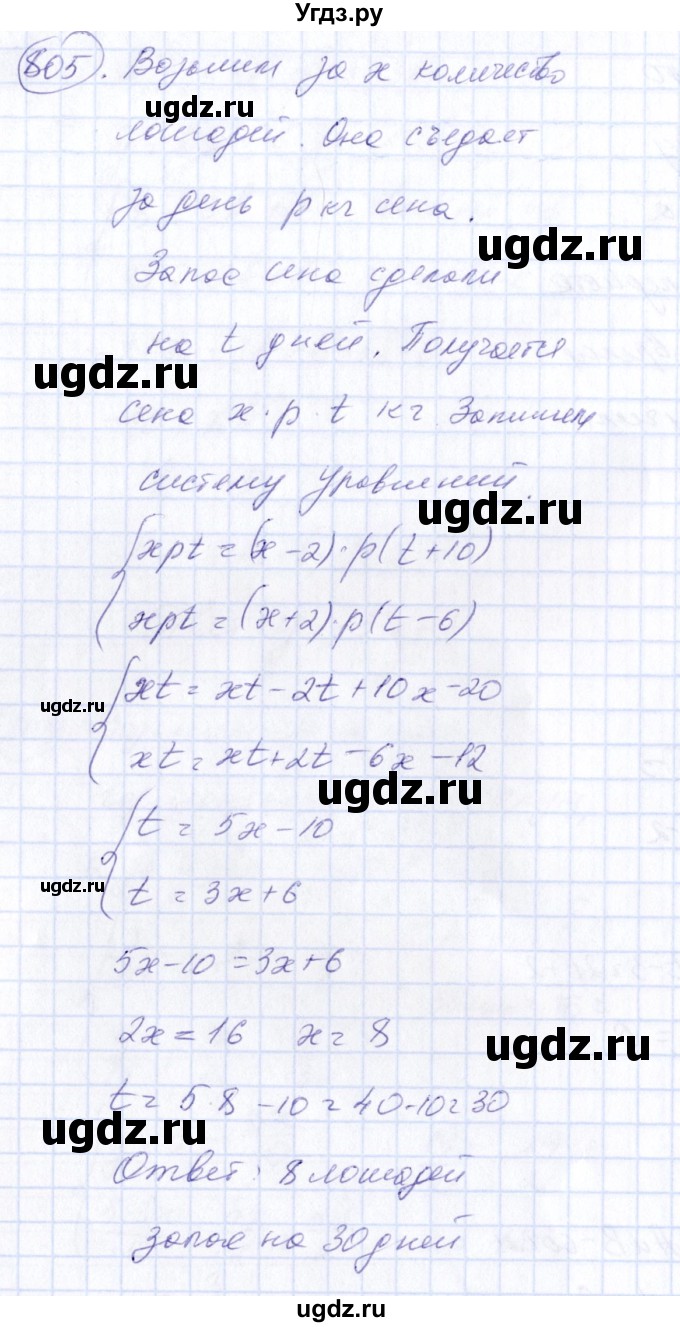 Угдз.ру
805. Возьмим за x количество
ugdz.ru
лошадей. Она съедает
за день p кг сена.
ugdz.ru
Запас сена сделали
на t дней. Получается
ugdz.ru
сена x·p·t кг Запишем
систему уравнений.
ugdz.ru
xpt = (x-2)·p(t+10)
xpt = (x+2)·p(t-6)
xt = xt-2t+10x-20
ugdz.ru
xt = xt+2t-6x-12
ugdz.ru
t = 5x-10
ugdz.ru
t = 3x+6
5x-10=3x+6
2x=16 x=8
ugdz.ru
t = 5·8-10=40-10=30
ugdz.ru
Ответ: 8 лошадей
запас на 30 дней
ugdz.ru